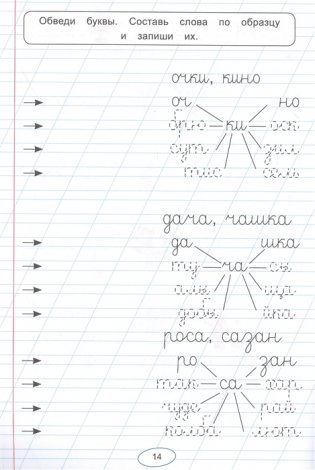 Обведи буквы. Составь слова по образцу
и запиши их.
очки, кино
оч но
брю ки оск
сут зил
тис сель
дача, чашка
да шка
ту ча сы
алы ща
добы йка
роса, сазан
ро зан
так са хар
чуде рай
колба лют
14